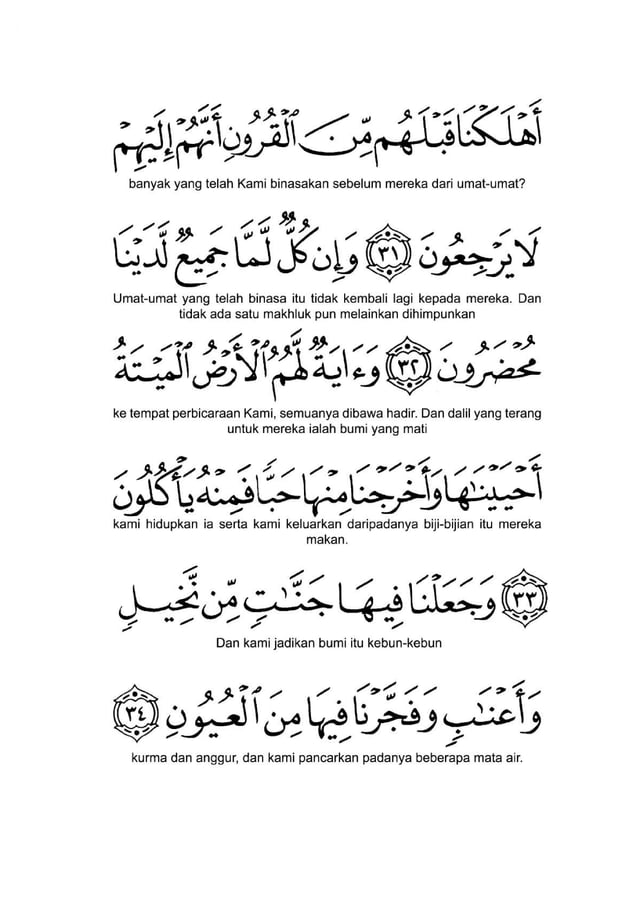 أَهْلَكْنَا قَبْلَهُم مِّنَ ٱلْقُرُونِ أَنَّهُمْ إِلَيْهِمْ
banyak yang telah Kami binasakan sebelum mereka dari umat-umat?
لَا يَرْجِعُونَ ﴿٣١﴾ وَإِن كُلٌّ لَّمَّا جَمِيعٌ لَّدَيْنَا
Umat-umat yang telah binasa itu tidak kembali lagi kepada mereka. Dan
tidak ada satu makhluk pun melainkan dihimpunkan
مُحْضَرُونَ ﴿٣٢﴾ وَءَايَةٌ لَّهُمُ ٱلْأَرْضُ ٱلْمَيْتَةُ
ke tempat perbicaraan Kami, semuanya dibawa hadir. Dan dalil yang terang
untuk mereka ialah bumi yang mati
أَحْيَيْنَـٰهَا وَأَخْرَجْنَا مِنْهَا حَبًّا فَمِنْهُ يَأْكُلُونَ
kami hidupkan ia serta kami keluarkan daripadanya biji-bijian itu mereka
makan.
﴿٣٣﴾ وَجَعَلْنَا فِيهَا جَنَّـٰتٍ مِّن نَّخِيلٍ
Dan kami jadikan bumi itu kebun-kebun
وَأَعْنَـٰبٍ وَفَجَّرْنَا فِيهَا مِنَ ٱلْعُيُونِ ﴿٣٤﴾
kurma dan anggur, dan kami pancarkan padanya beberapa mata air.